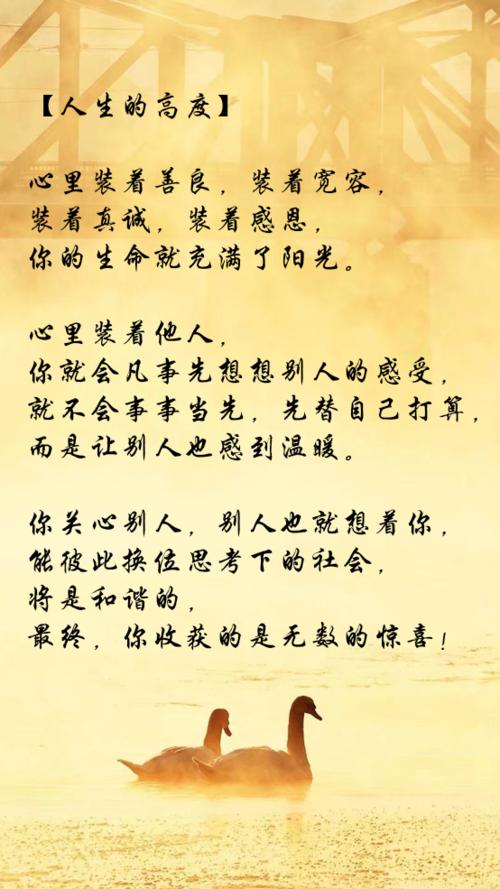 【人生的高度】
心里装着善良，装着宽容，
装着真诚，装着感恩，
你的生命就充满了阳光。
心里装着他人，
你就会凡事先想想别人的感受，
就不会事事当先，先替自己打算，
而是让别人也感到温暖。
你关心别人，别人也就想着你，
能彼此换位思考下的社会，
将是和谐的，
最终，你收获的是无数的惊喜！